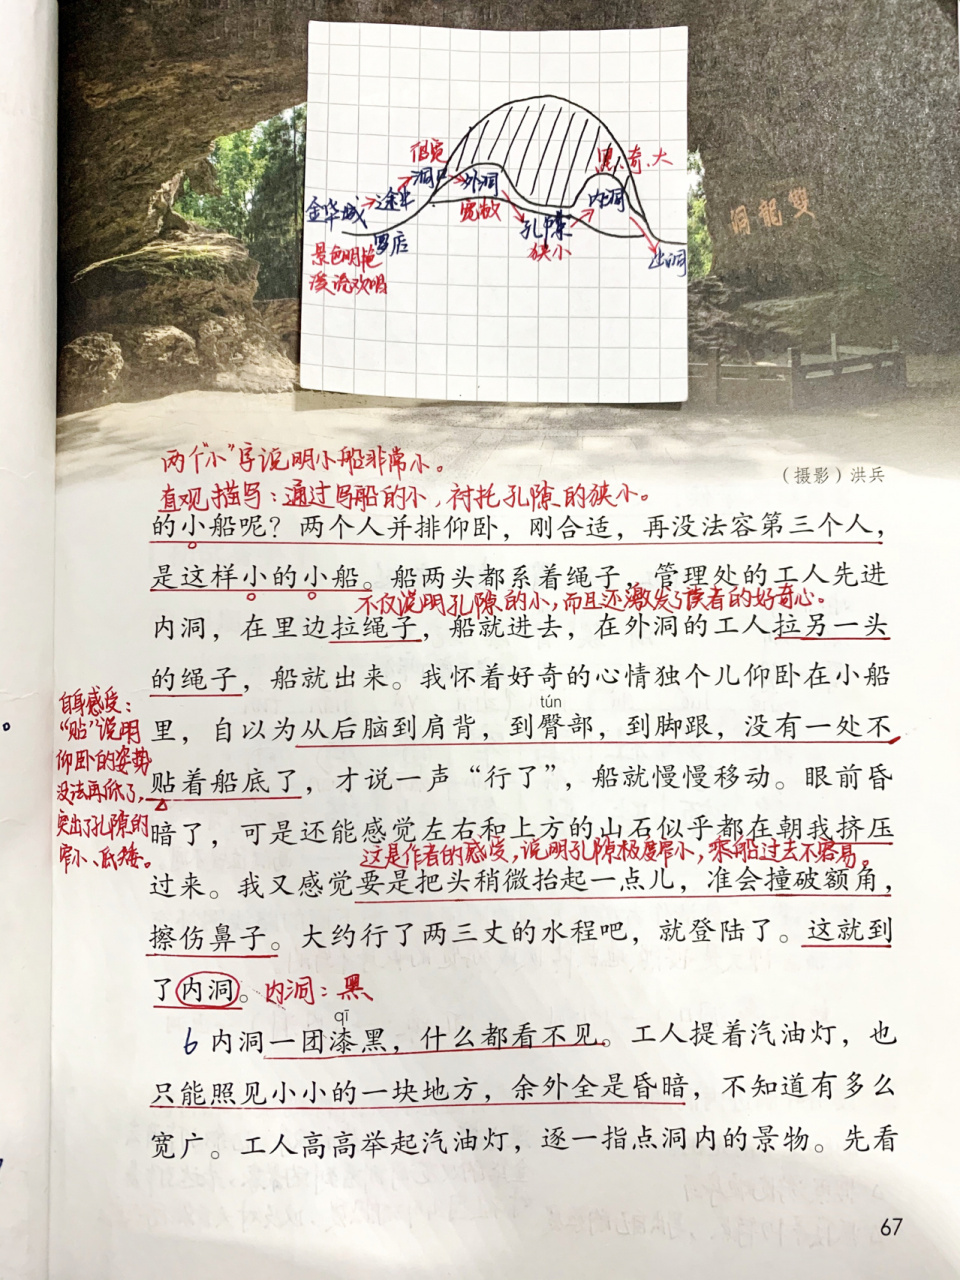 但宽
洞口
外洞
宽敞
黑、奇、大
内洞
金华城
途中
罗店
孔隙
狭小
出洞
景色明艳
溪流欢唱
雙龍洞
两个“小”字说明小船非常小。
（摄影）洪兵
直观描写：通过写船的小，衬托孔隙的狭小。
的小船呢？两个人并排仰卧，刚合适，再没法容第三个人，
是这样小的小船。船两头都系着绳子，管理处的工人先进
不仅说明孔隙的小，而且还激发了读者的好奇心。
内洞，在里边拉绳子，船就进去，在外洞的工人拉另一头
的绳子，船就出来。我怀着好奇的心情独个儿仰卧在小船
tún
里，自以为从后脑到肩背，到臀部，到脚跟，没有一处不
贴着船底了，才说一声“行了”，船就慢慢移动。眼前昏
暗了，可是还能感觉左右和上方的山石似乎都在朝我挤压
这是作者的感受，说明孔隙极度窄小，乘船过去不容易。
过来。我又感觉要是把头稍微抬起一点儿，准会撞破额角，
擦伤鼻子。大约行了两三丈的水程吧，就登陆了。这就到
了内洞。内洞：黑
自身感受：
“贴”说明
仰卧的姿势
没法再低了，
突出了孔隙的
窄小、低矮。
qī
6 内洞一团漆黑，什么都看不见。工人提着汽油灯，也
只能照见小小的一块地方，余外全是昏暗，不知道有多么
宽广。工人高高举起汽油灯，逐一指点洞内的景物。先看
67